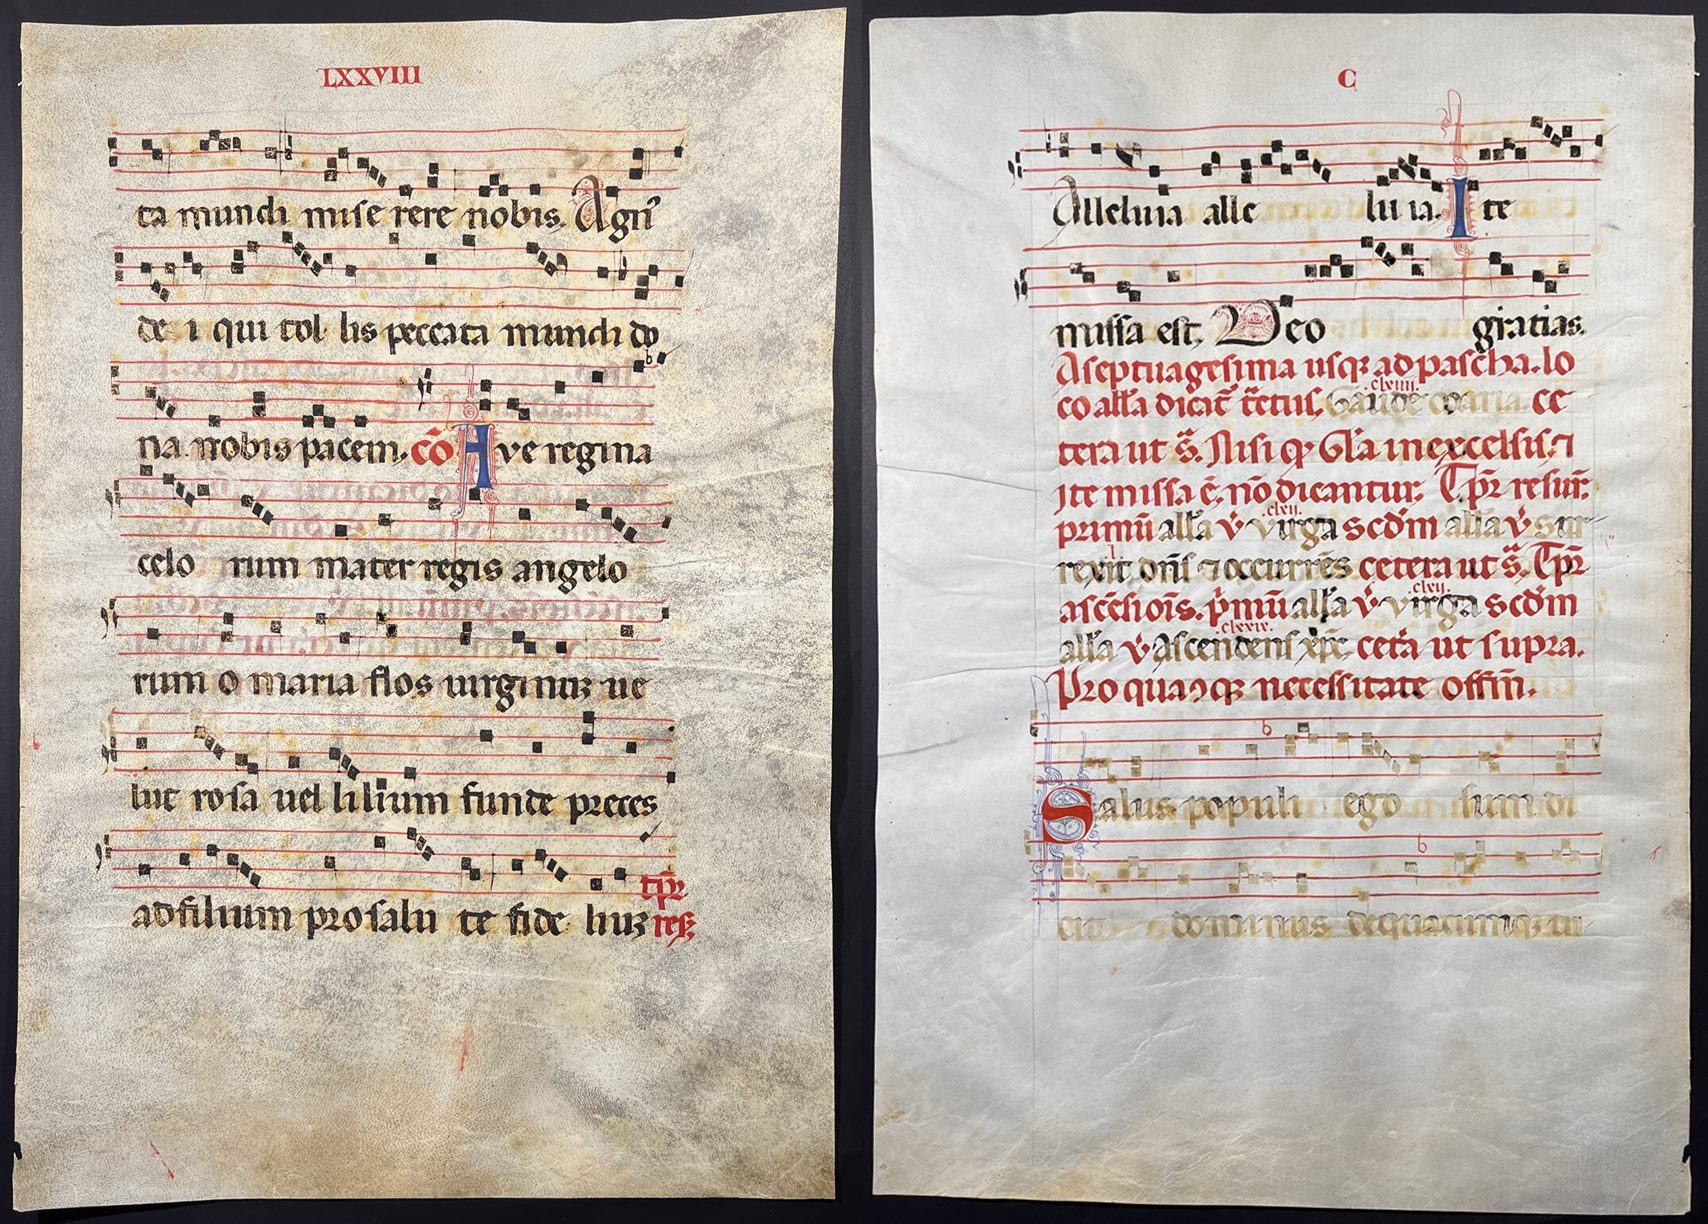 LXXVIII
ta mundi mise rere nobis. Agn᷒
de i qui tol lis peccata mundi do
na nobis pacem. cō Ave regina
celo rum mater regis angelo
rum o maria flos uirginuꝝ ue
lut rosa uel lilium funde preces
ad filium pro salu te fide liuꝝ
C
Alleluia alle lu ia. Ite
missa est. Deo gratias.
A septuagesima usqꝫ ad pascha. lo
co all'a dicat̄ t̄ctus, Gaude maria. ce
clxiiii.
tera ut s̄. Nisi qꝫ Gl'a in excelsis. ⁊
Ite missa ē. nō dicantur. Tp̄r resur.
primū all'a v̄ virga scđm all'a v̄ Sur
clxii.
rexit dn̄s ⁊ occurrēs cetera ut s̄. Tp̄r
ascēsiois. p̄mū all'a v̄ virga scđm
clxii.
all'a v̄ Ascendens xp̄c cet'a ut supra.
clxxix.
Pro necessitate offm̄.
Salus populi ego sum di
cit dominus de quacumqꝫ tri